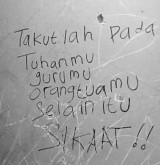 Takutlah Pada
Tuhanmu
gurumu
orangtuamu
Selain itu
SIKAAT!!